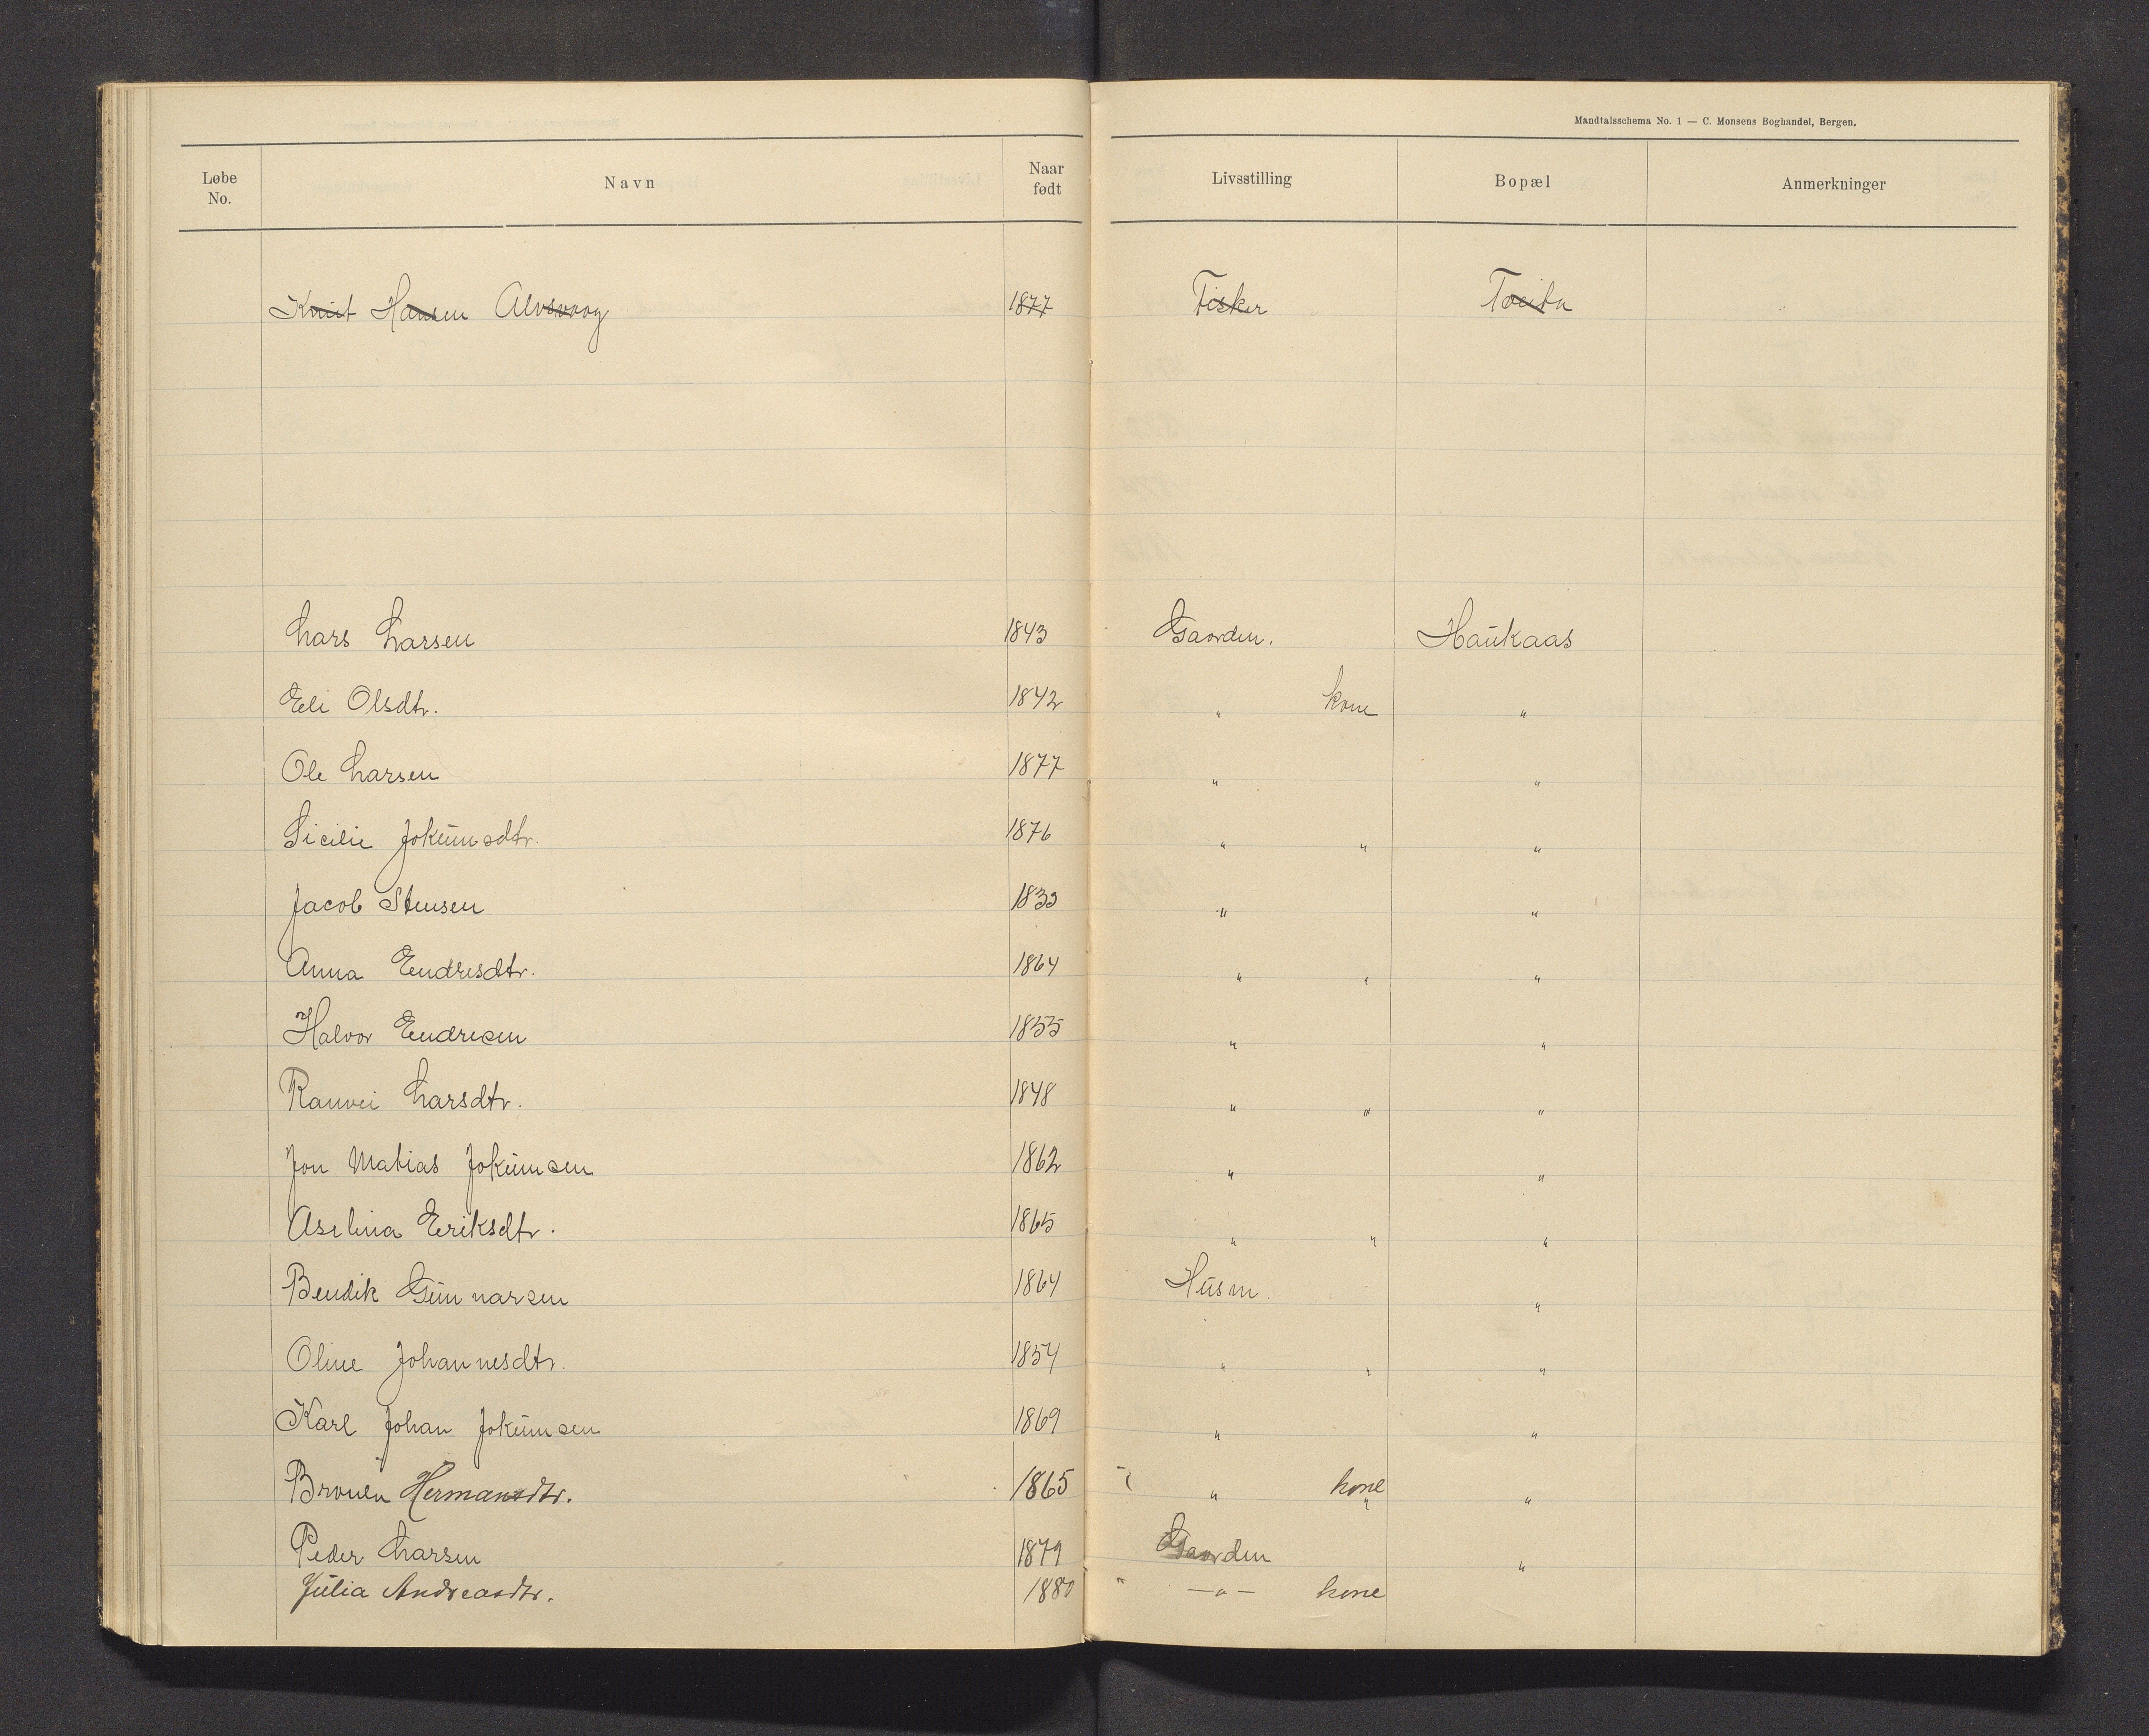 Mandtalsschema No. 1 — C. Monsens Boghandel, Bergen.
Løbe No. Navn Naar født Livsstilling Bopæl Anmerkninger
Knut Hansen Alvsvaag 1877 Fisker
Lars Larsen 1843 Gaarden. Haukaas
Eli Olsdtr. 1842 " kone "
Ole Larsen 1877 " "
Sicilie Jokumsdtr. 1876 " " "
Jacob Stensen 1833 " "
Anna Endresdtr. 1864 " " "
Halvor Endresen 1855 " "
Ranvei Larsdtr. 1848 " " "
Jon Matias Jokumsen 1862 " "
Aselina Eriksdtr. 1865 " " "
Bendik Gunnarsen 1864 Husm. "
Oline Johannesdtr. 1854 " " "
Karl Johan Jokumsen 1869 " "
Hermansdtr. 1865 " kone "
Peder Larsen 1879 Gaarden "
Julia Andreasdtr. 1880 " —"— kone